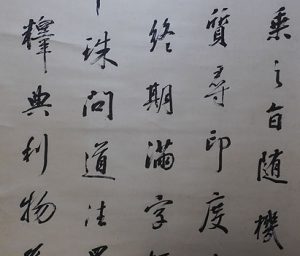 乘之旨随機
質尋印度
终期滿字
珠問道往
釋典利物